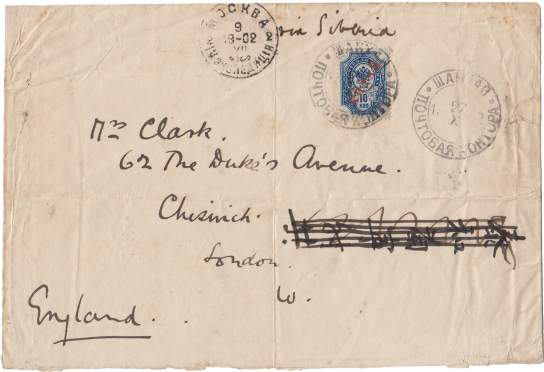 МОСКВА
9
19-02
XII
via Siberia
ШАНХАЙ
ПОЧТОВАЯ КОНТОРА
10
ШАНХАЙ
27
X
ПОЧТОВАЯ КОНТОРА
Mrs Clark.
62 The Duke's Avenue.
Chiswick.
London.
W.
England.